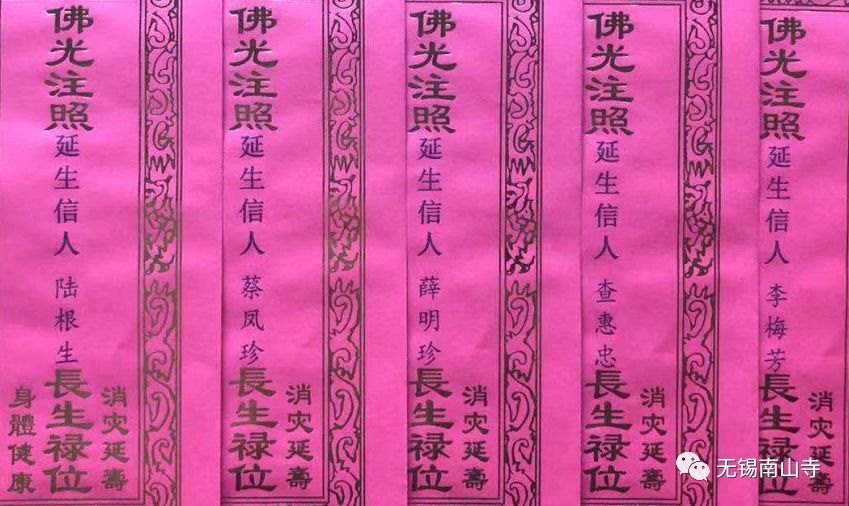 佛光注照
延生信人 陆根生
長生禄位
消灾延壽
身體健康
佛光注照
延生信人 蔡凤珍
長生禄位
消灾延壽
佛光注照
延生信人 薛明珍
長生禄位
消灾延壽
佛光注照
延生信人 查惠忠
長生禄位
消灾延壽
佛光注照
延生信人 李梅芳
長生禄位
消灾延壽
无锡南山寺